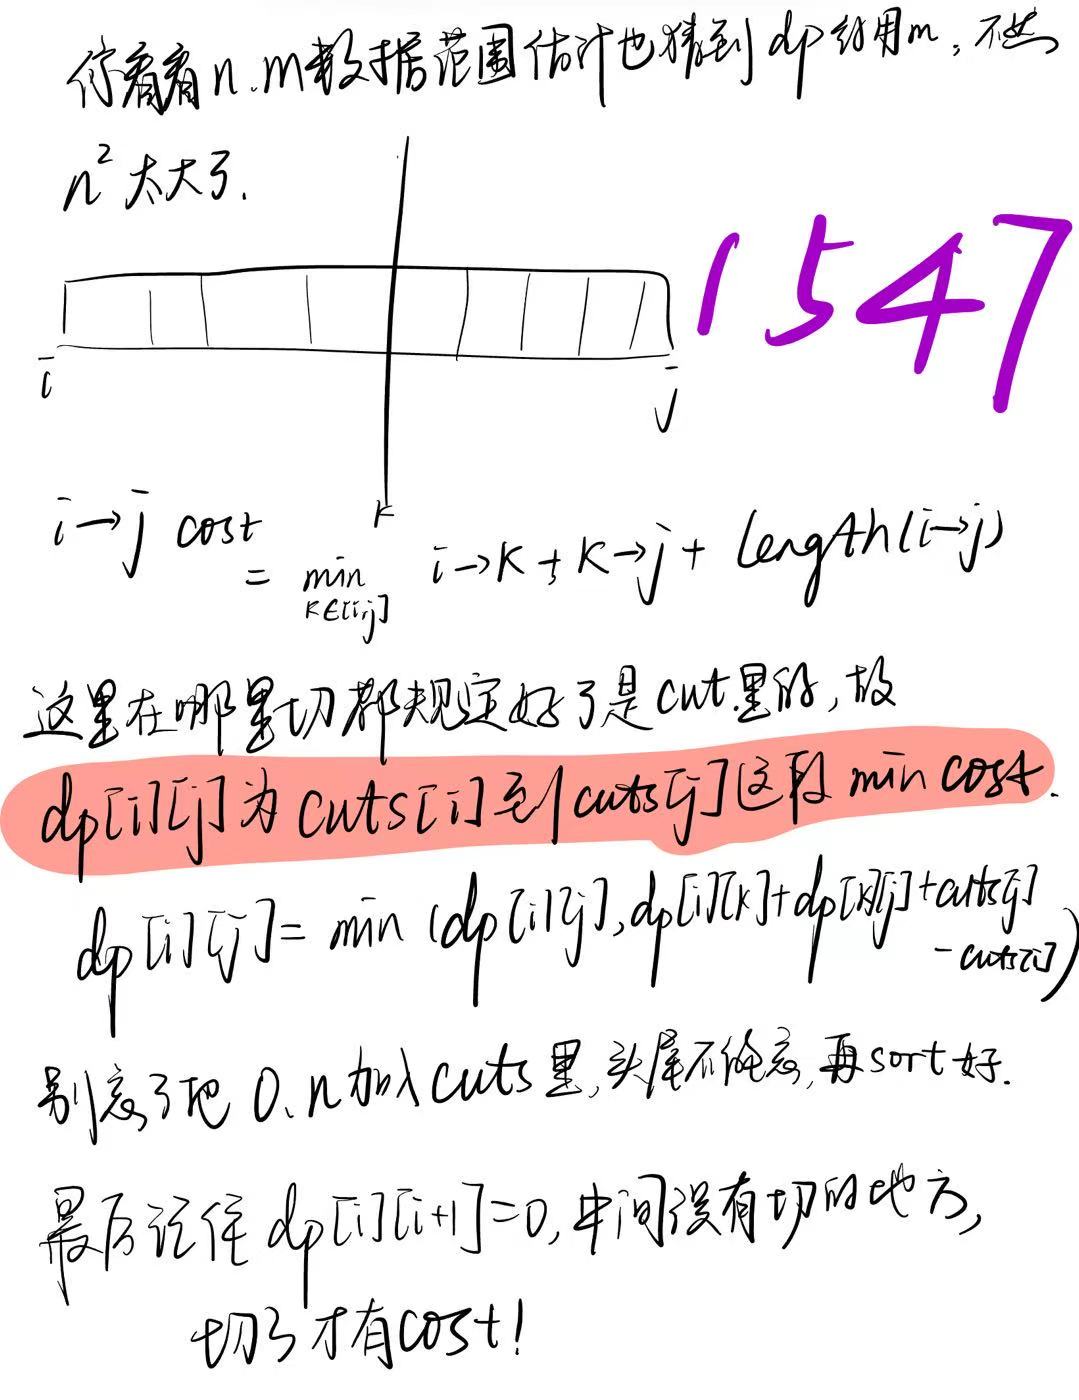 你看看n.m数据范围估计也猜到dp约用m,不然
n²太大了.
1547
i
j
k
i→j cost
= min i→K + K→j + length(i→j)
K∈[i,j]
这里在哪里切都规定好了是cut里的,故
dp[i][j]为cuts[i]到cuts[j]这段min cost.
dp[i][j]=min(dp[i][j],dp[i][k]+dp[k][j]+cuts[j]
-cuts[i])
别忘了把0.n加入cuts里,头尾不能忘,再sort好.
最后记住dp[i][i+1]=0,中间没有切的地方,
切了才有cost!